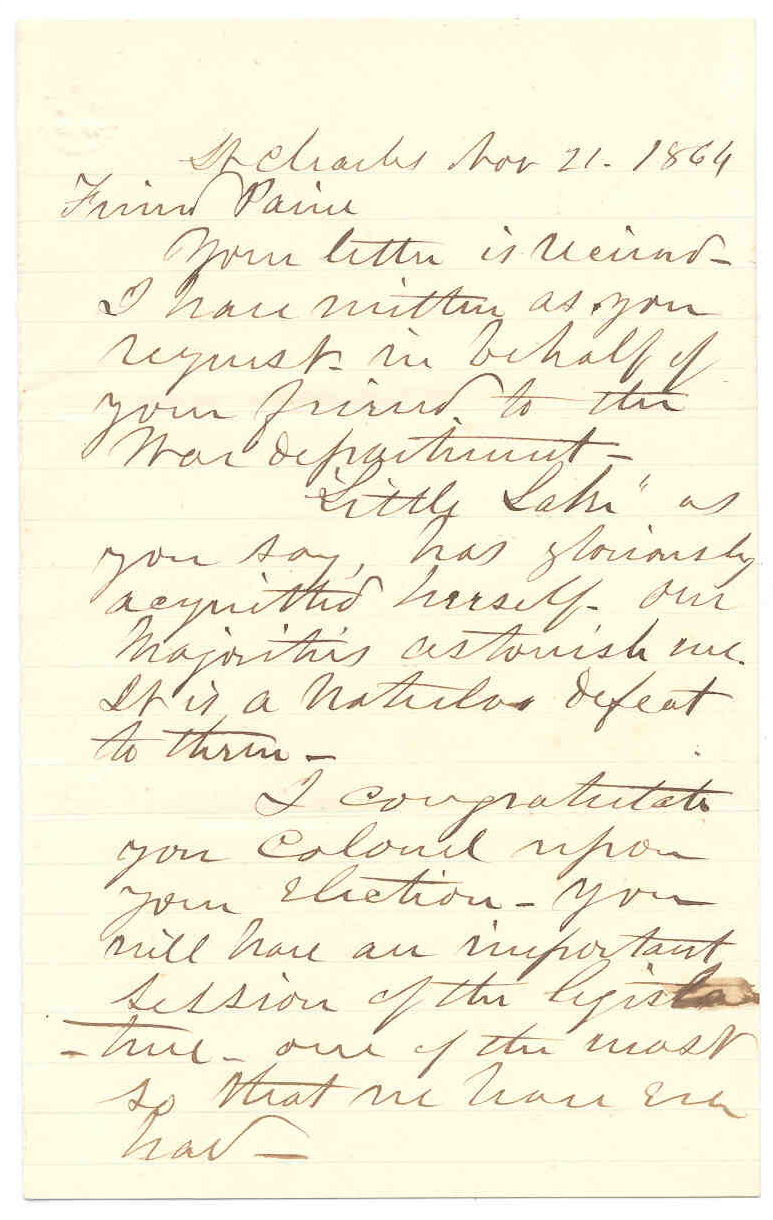 St Charles Nov 21. 1864
Friend Paine
Your letter is received -
I have written as you
request in behalf of
your friend to the
War department -
"Little Lake" as
you say, has gloriously
acquitted herself - Our
Majorities astonish me.
It is a Waterloo defeat
to them -
I congratulate
you Colonel upon
your election - You
will have an important
session of the legisla
- ture - one of the most
so that we have ever
had -